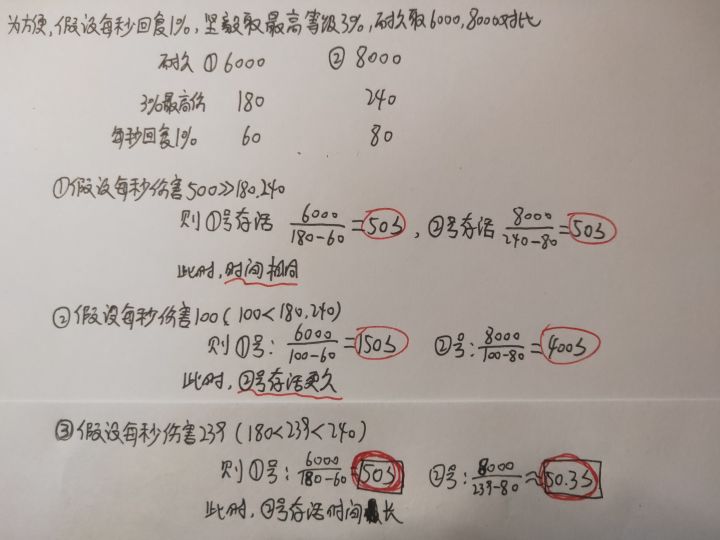 为方便,假设每秒回复1%,坚毅取最高等级3%,耐久取6000,8000对比
耐久 ①6000 ②8000
3%最高伤 180 240
每秒回复1% 60 80
①假设每秒伤害500≫180,240
则①号存活 6000/(180-60)=50s, ②号存活 8000/(240-80)=50s
此时,时间相同
②假设每秒伤害100(100<180,240)
则①号:6000/(100-60)=150s ②号:8000/(100-80)=400s
此时,②号存活更久
③假设每秒伤害239(180<239<240)
则①号:6000/(180-60)=50s ②号:8000/(239-80)≈50.3s
此时,②号存活时间长